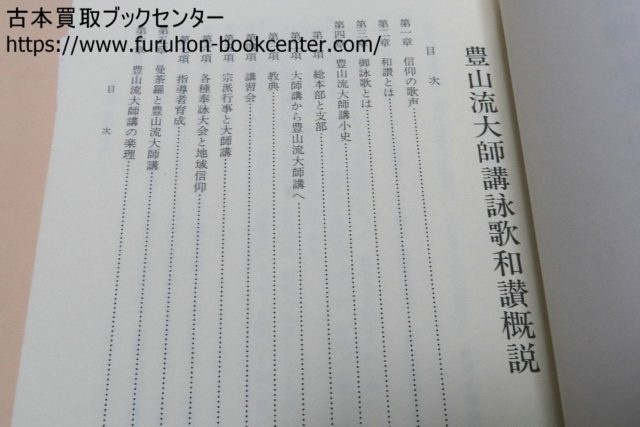 古本買取ブックセンター
https://www.furuhon-bookcenter.com/
豊山流大師講詠歌和讃概説
目次
第一章 信仰の歌声
第二章 和讃とは
第三 御詠歌とは
第四 豊山流大師講小史
第 項 総本部と支部
第 項 大師講から豊山流大師講へ
第 項 教典
第 項 講習会
第 項 宗派行事と大師講
第 項 各種奉詠大会と地域信仰
第 項 指導者育成
第五 曼荼羅と豊山流大師講
豊山流大師講の楽理
目次